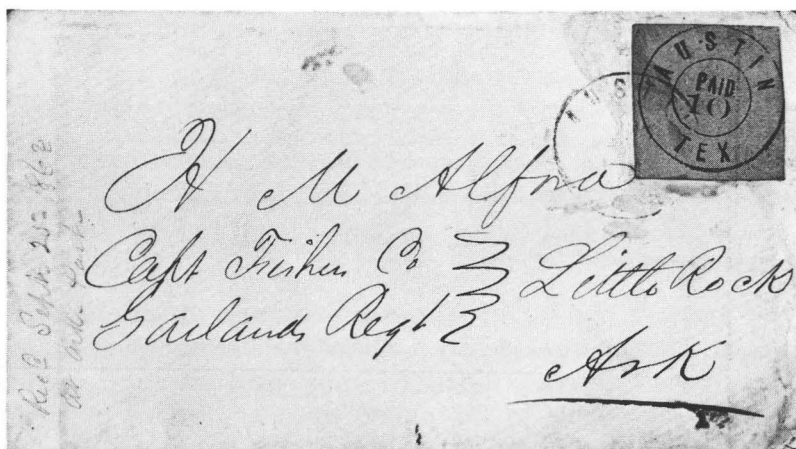 AUSTIN
PAID
10
TEX
AUS
H M Alford
Capt Fisher Co
Garlands Regt
Little Rock
Ark
Recd Sept 23d 1862